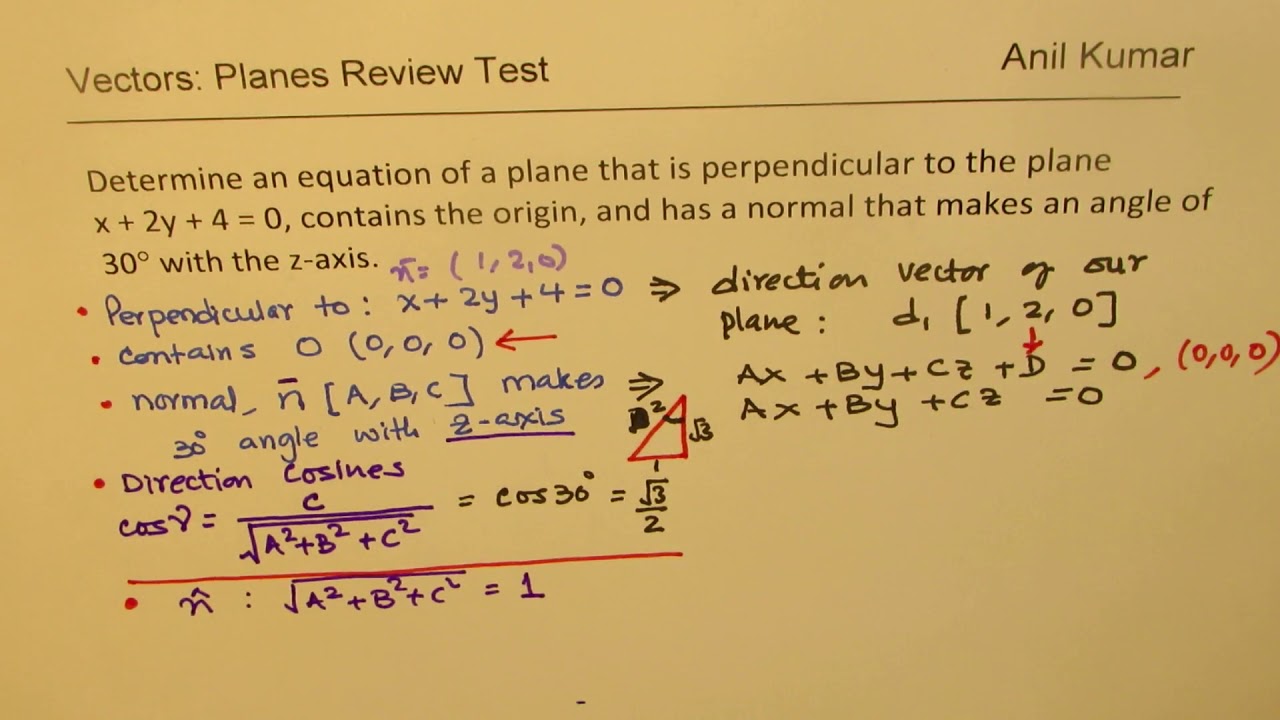 Vectors: Planes Review Test
Anil Kumar
Determine an equation of a plane that is perpendicular to the plane
x + 2y + 4 = 0, contains the origin, and has a normal that makes an angle of
30° with the z-axis.
n̄ = (1, 2, 0)
• Perpendicular to: x + 2y + 4 = 0 ⇒ direction vector of our
plane: d₁ [1, 2, 0]
• contains O (0, 0, 0) ←
Ax + By + Cz + D = 0, (0, 0, 0)
• normal, n̄ [A, B, C] makes ⇒
Ax + By + Cz = 0
30° angle with z-axis
2 √3 1
• Direction Cosines
cosγ = C / √A² + B² + C² = cos30° = √3 / 2
• n̂ : √A² + B² + C² = 1